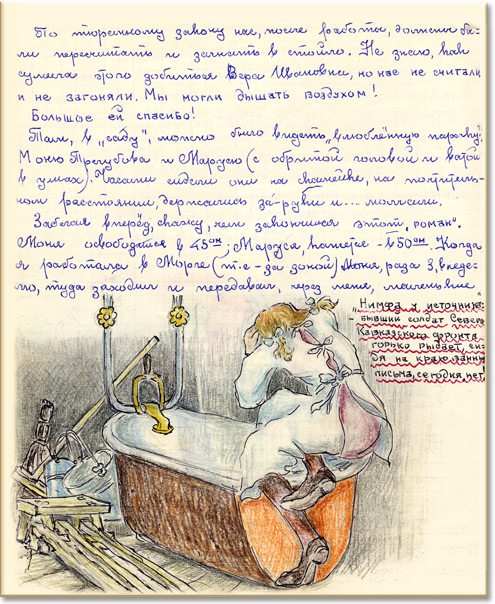 По тюремному закону нас, после работы, должны бы-
ли пересчитать и загнать в стойло. Не знаю, как
сумела этого добиться Вера Ивановна, но нас не считали
и не загоняли. Мы могли дышать воздухом!
Большое ей спасибо!
Там, в „саду", можно было видеть „влюблённую парочку":
Моню и Марусю (с обритой головой и ватой
в ушах). Часами сидели они на скамейке, на почтитель-
ном расстоянии, держались за-руки и... молчали.
Забегая вперёд, скажу, чем закончился этот „роман".
Моня освободится в 45ом; Маруся, кажется - в 50ом. Когда
я работала в Морге (т.е - за зоной) Моня, раза 3, в неде-
лю, туда заходил и передавал, через меня, маленькие
„Нимфа у источника:
бывший солдат Северо
Кавказского фронта
горько рыдает, си-
дя на краю ванны
письма, сегодня, нет!